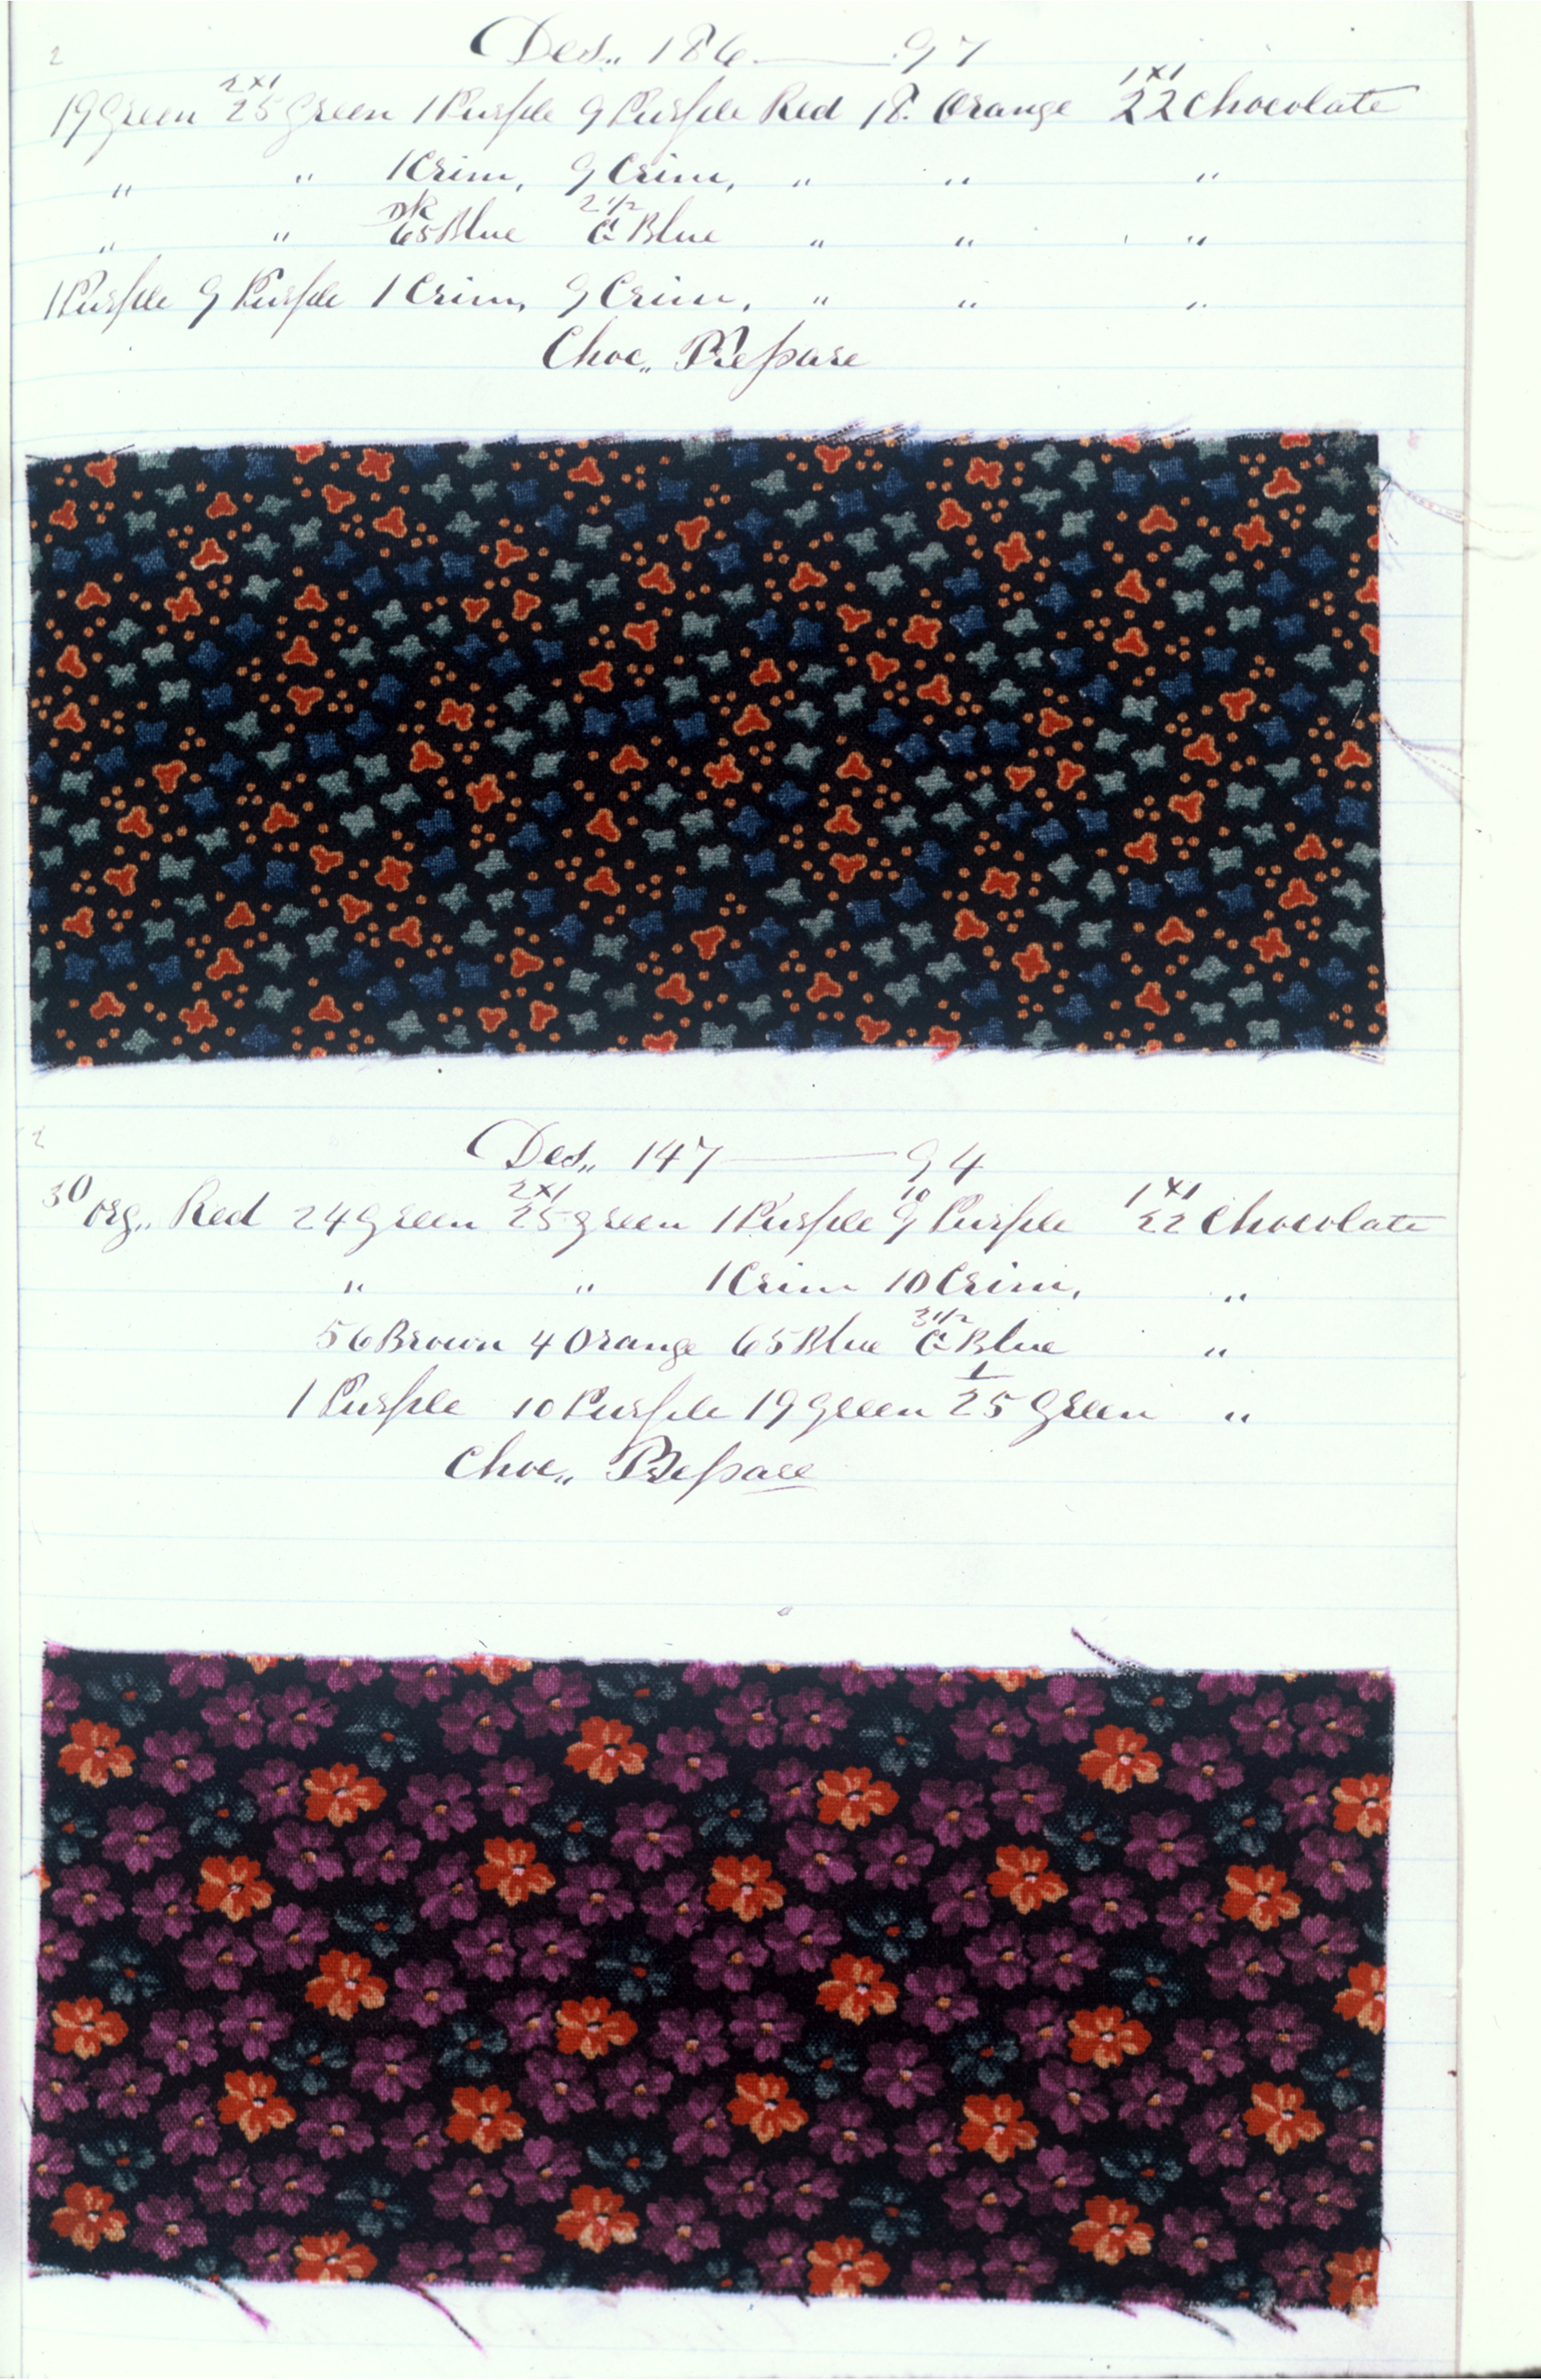 2
Des,, 186 — 97
2x1 1x1
19 Green 25 Green 1 Purple 9 Purple Red 18. Orange 22 Chocolate
" " 1 Crim, 9 Crim, " " "
DK 2 1/2
" " 65 Blue C Blue " " "
1 Purple 9 Purple 1 Crim, 9 Crim, " " "
Choc,, Prepare
2
Des,, 147 — 94
2x1 10 1x1
30 Org,, Red 24 Green 25 green 1 Purple 9 Purple 22 Chocolate
" " 1 Crim 10 Crim, "
3 1/2
56 Brown 4 Orange 65 Blue C Blue "
1 Purple 10 Purple 19 Green 25 Green "
Choc,, Prepare